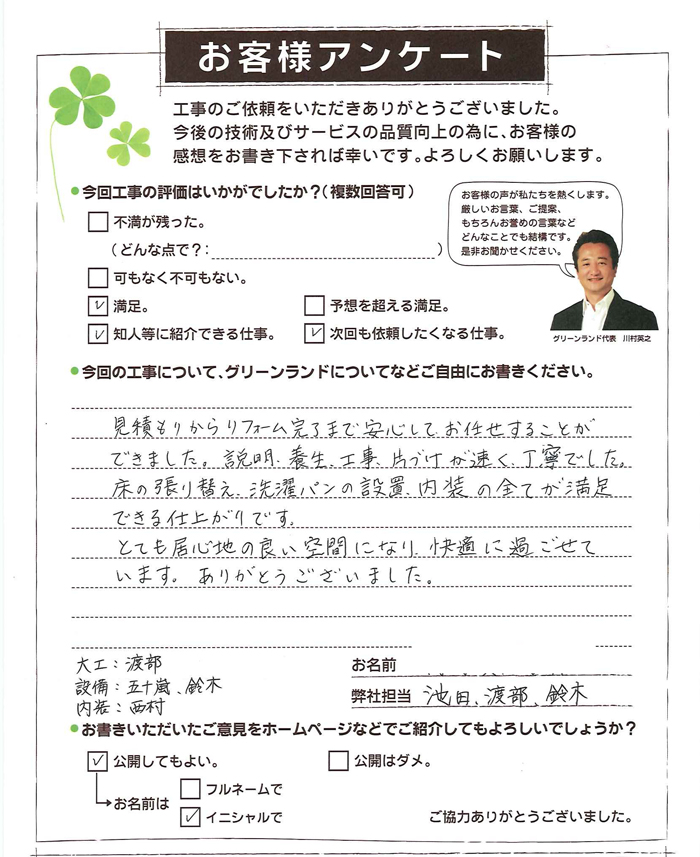 お客様アンケート
工事のご依頼をいただきありがとうございました。
今後の技術及びサービスの品質向上の為に、お客様の
感想をお書き下されば幸いです。よろしくお願いします。
今回工事の評価はいかがでしたか？（複数回答可）
不満が残った。
（どんな点で？：　）
可もなく不可もない。
満足。
予想を超える満足。
知人等に紹介できる仕事。
次回も依頼したくなる仕事。
お客様の声が私たちを熱くします。
厳しいお言葉、ご提案、
もちろんお誉めの言葉など
どんなことでも結構です。
是非お聞かせください。
グリーンランド代表　川村英之
今回の工事について、グリーンランドについてなどご自由にお書きください。
見積もりからリフォーム完了まで安心してお任せすることが
できました。説明、養生、工事、片づけが速く、丁寧でした。
床の張り替え、洗濯パンの設置、内装の全てが満足
できる仕上がりです。
とても居心地の良い空間になり、快適に過ごせて
います。ありがとうございました。
大工：渡部
設備：五十嵐、鈴木
内装：西村
お名前
弊社担当　池田、渡部、鈴木
お書きいただいたご意見をホームページなどでご紹介してもよろしいでしょうか？
公開してもよい。
公開はダメ。
お名前は
フルネームで
イニシャルで
ご協力ありがとうございました。